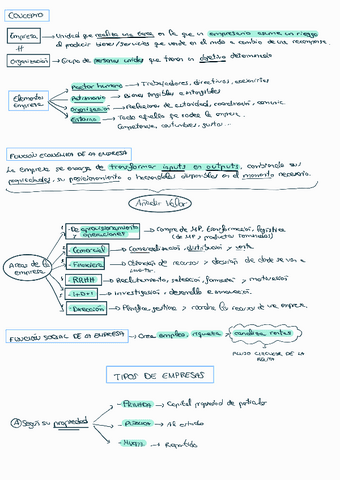 CONCEPTO
Empresa → Unidad que realiza una tarea en la que un empresario asume un riesgo
al producir bienes/servicios que vende en el mdo a cambio de una recompensa.
#
Organización → Grupo de personas unidas que tienen un objetivo determinado
Elementos Empresa
Factor humano → Trabajadores, directivos, accionistas
Patrimonio → Bienes tangibles e intangibles
Organización → Relaciones de autoridad, coordinación, comunic.
Entorno → Todo aquello que rodea la empr.
Competencia, costumbres, gustos...
FUNCIÓN ECONÓMICA DE LA EMPRESA
La empresa se encarga de transformar inputs en outputs, cambiando sus
propiedades, su posicionamiento o haciéndolos disponibles en el momento necesario.
Añadir Valor
Areas de la empresa
De aprovisionamiento y operaciones → Compra de MP, transformación, logística
(de MP y productos terminados)
Comercial → Comercialización, distribución y venta
Financiera → Obtención de recursos y decisión de
RRHH → Reclutamiento, selección, formación y motivación
I+D+i → Investigación, desarrollo e innovación
Dirección → Planifica, gestiona y coordina los recursos de una empresa.
FUNCIÓN SOCIAL DE LA EMPRESA → Crea empleo, riqueza y canaliza rentas
FLUJO CIRCULAR DE LA RENTA
TIPOS DE EMPRESAS
A Según su propiedad
- PRIVADA → Capital propiedad de particular
- PÚBLICA → Al estado
- MIXTA → Repartida